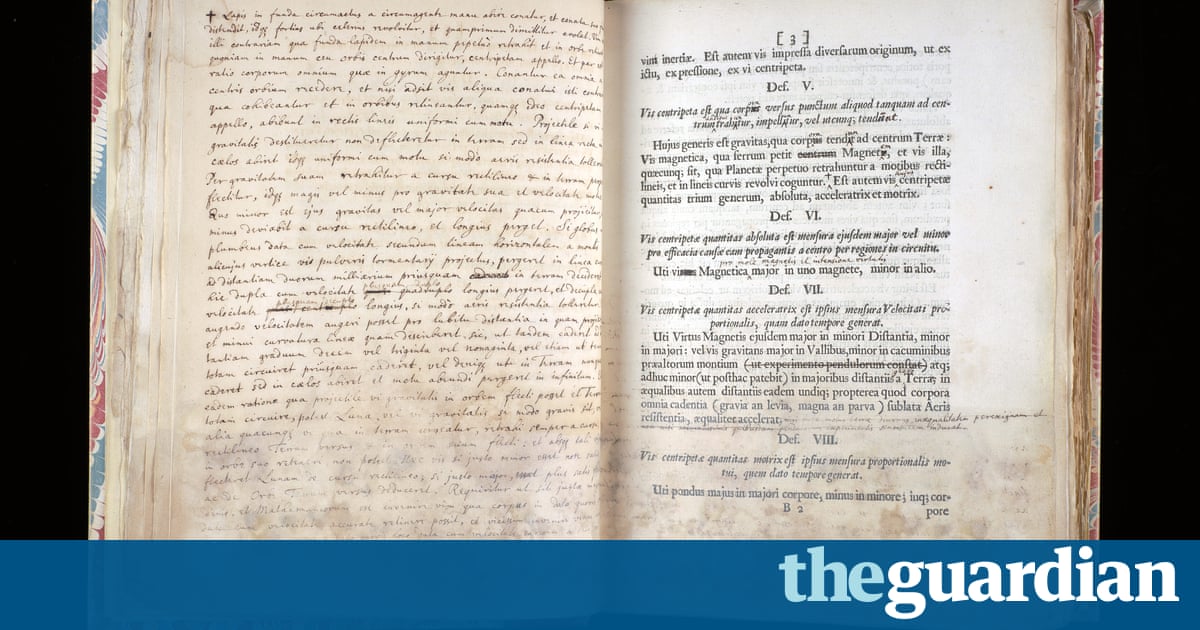 ✝ Lapis in funda circumactus a circumagente manu abire conatur, et conatu suo
distendit, idq fortius ubi celerius revolvitur, et quamprimum dimittitur avolat. Vim
illi contrariam qua funda lapidem in manum perpetuo retrahit et in orbe retinet
quoniam in manum ceu orbis centrum dirigitur, centripetam appello. Et par est
ratio corporum omnium quæ in gyrum aguntur. Conantur ea omnia a
centris orbium recedere, et nisi adsit vis aliqua conatui isti contraria
qua cohibeantur et in orbibus retineantur, quamq ideo centripetam
appello, abibunt in rectis lineis uniformi cum motu. Projectile si vi
gravitatis destitueretur non deflecteretur in terram sed in linea recta
cælos abiret idq uniformi cum motu si modo aeris resistentia tolleretur
Per gravitatem suam retrahitur a cursu rectilineo & in terram
flectitur, idq magis vel minus pro gravitate sua et velocitate motus
Quo minor est ejus gravitas vel major velocitas quacum projicitur,
minus deviabit a cursu rectilineo, et longius perget. Si globus
plumbeus data cum velocitate secundum lineam horizontalem a montis
alicujus vertice vi pulveris tormentarij projectus, pergeret in linea
ad distantiam duorum milliarium priusquam in terram decideret
hic dupla cum velocitate quadruplo longius pergeret, et decupla
velocitate longius, si modo aeris resistentia tolleretur.
augendo velocitatem augeri posset pro lubitu distantia in quam
et minui curvatura lineæ quam describeret sic, ut tandem caderet
tantiam graduum decem vel triginta vel nonaginta, vel etiam ut
totam circuiret priusquam caderet, vel deniq ut in Terram nunquam
caderet sed in cælos abiret et motu abeundi pergeret in infinitum.
eadem ratione qua projectile vi gravitatis in orbem flecti posset et Terram
totam circuire, potest Luna, vel vi gravitatis si modo gravis sit, vel
alia quacunq vi qua in terram urgeatur, retrahi semper a cursu
rectilineo Terram versus & in orbem suum flecti: et absq tali
in orbe suo retineri non potest. Hæc vis si justo minor esset non satis
flecteret Lunam de cursu rectilineo; si justo major, plus satis
ac de Orbe Terram versus deduceret. Requiritur ut sit justæ
et Mathematicorum est invenire vim qua corpus in dato quovis
data cum velocitate accurate retineri possit, et vicissim invenire
[ 3 ]
vim inertiæ. Est autem vis impressa diversarum originum, ut ex
ictu, ex pressione, ex vi centripeta.
Def. V.
Vis centripeta est qua corpus versus punctum aliquod tanquam ad cen-
trum trahitur, impellitur, vel utcunq; tendit.
Hujus generis est gravitas, qua corpus tendit ad centrum Terræ:
Vis magnetica, qua ferrum petit centrum Magnetis, et vis illa,
quæcunq; sit, qua Planetæ perpetuo retrahuntur a motibus recti-
lineis, et in lineis curvis revolvi coguntur. ✝ Est autem vis centripetæ
quantitas trium generum, absoluta, acceleratrix et motrix.
Def. VI.
Vis centripetæ quantitas absoluta est mensura ejusdem major vel minor
pro efficacia causæ eam propagantis a centro per regiones in circuitu.
pro mole magnetis et intensione virtutis
Uti Magnetica major in uno magnete, minor in alio.
Def. VII.
Vis centripetæ quantitas acceleratrix est ipsius mensura Velocitati pro-
portionalis, quam dato tempore generat.
Uti Virtus Magnetis ejusdem major in minori Distantia, minor
in majori: vel vis gravitans major in Vallibus, minor in cacuminibus
præaltorum montium (ut experimento pendulorum constat) atq;
adhuc minor (ut posthac patebit) in majoribus distantiis a Terra; in
æqualibus autem distantiis eadem undiq; propterea quod corpora
omnia cadentia (gravia an levia, magna an parva) sublata Aeris
resistentia, æqualiter accelerat,
Def. VIII.
Vis centripetæ quantitas motrix est ipsius mensura proportionalis mo-
tui, quem dato tempore generat.
Uti pondus majus in majori corpore, minus in minore; inq; cor-
B 2
pore
theguardian